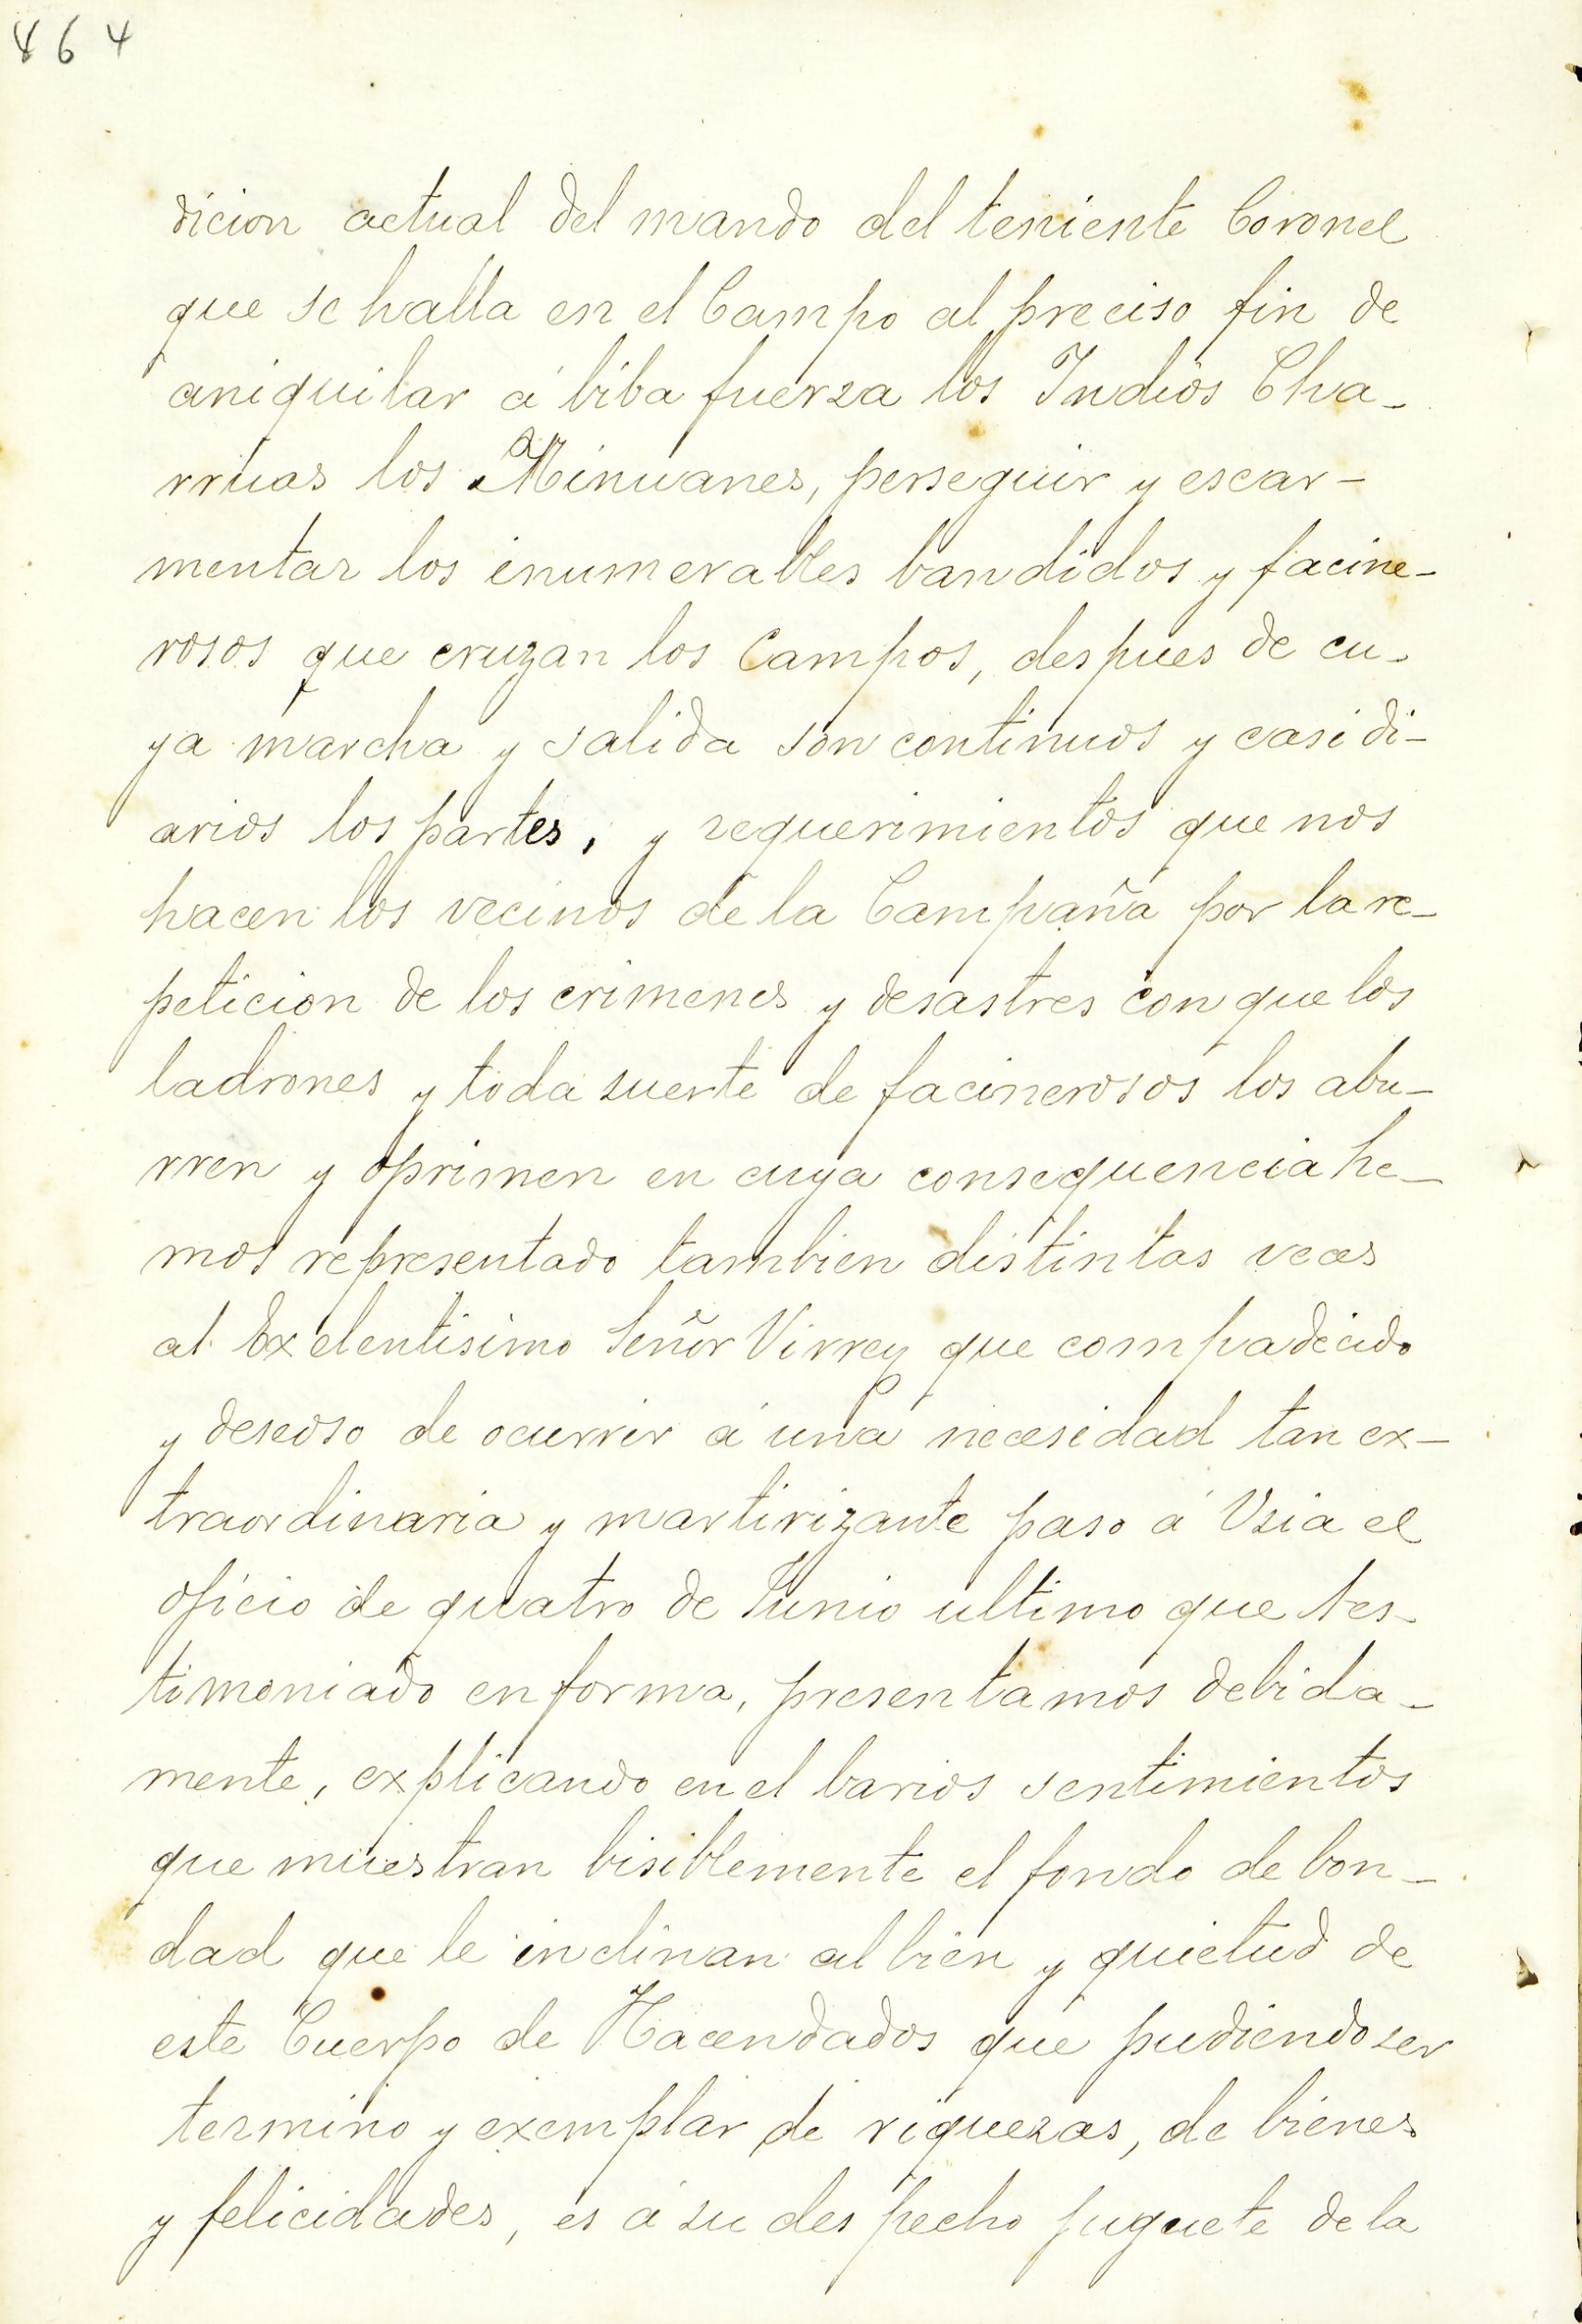 464
dicion actual del mando del teniente Coronel
que se halla en el Campo al preciso fin de
aniquilar á biba fuerza los Indios Cha-
rruas los Minuanes, perseguir y escar-
mentar los inumerables bandidos y facine-
rosos que cruzan los Campos, despues de cu-
ya marcha y salida son continuos y casi di-
arios los partes, y requerimientos que nos
hacen los vecinos de la Campaña por la re-
peticion de los crimenes y desastres con que los
ladrones y toda suerte de facinerosos los abu-
rren y oprimen en cuya consequencia he-
mos representado tambien distintas veces
al Exelentisimo Señor Virrey que compadecido
y deseoso de ocurrir á una necesidad tan ex-
traordinaria y martirizante paso á Usia el
oficio de quatro de Junio ultimo que tes-
timoniado en forma, presentamos debida-
mente, explicando en el barios sentimientos
que muestran bisiblemente el fondo de bon-
dad que le inclinan al bien y quietud de
este Cuerpo de Hacendados que pudiendo ser
termino y exemplar de riquezas, de bienes
y felicidades, es á su despecho juguete de la